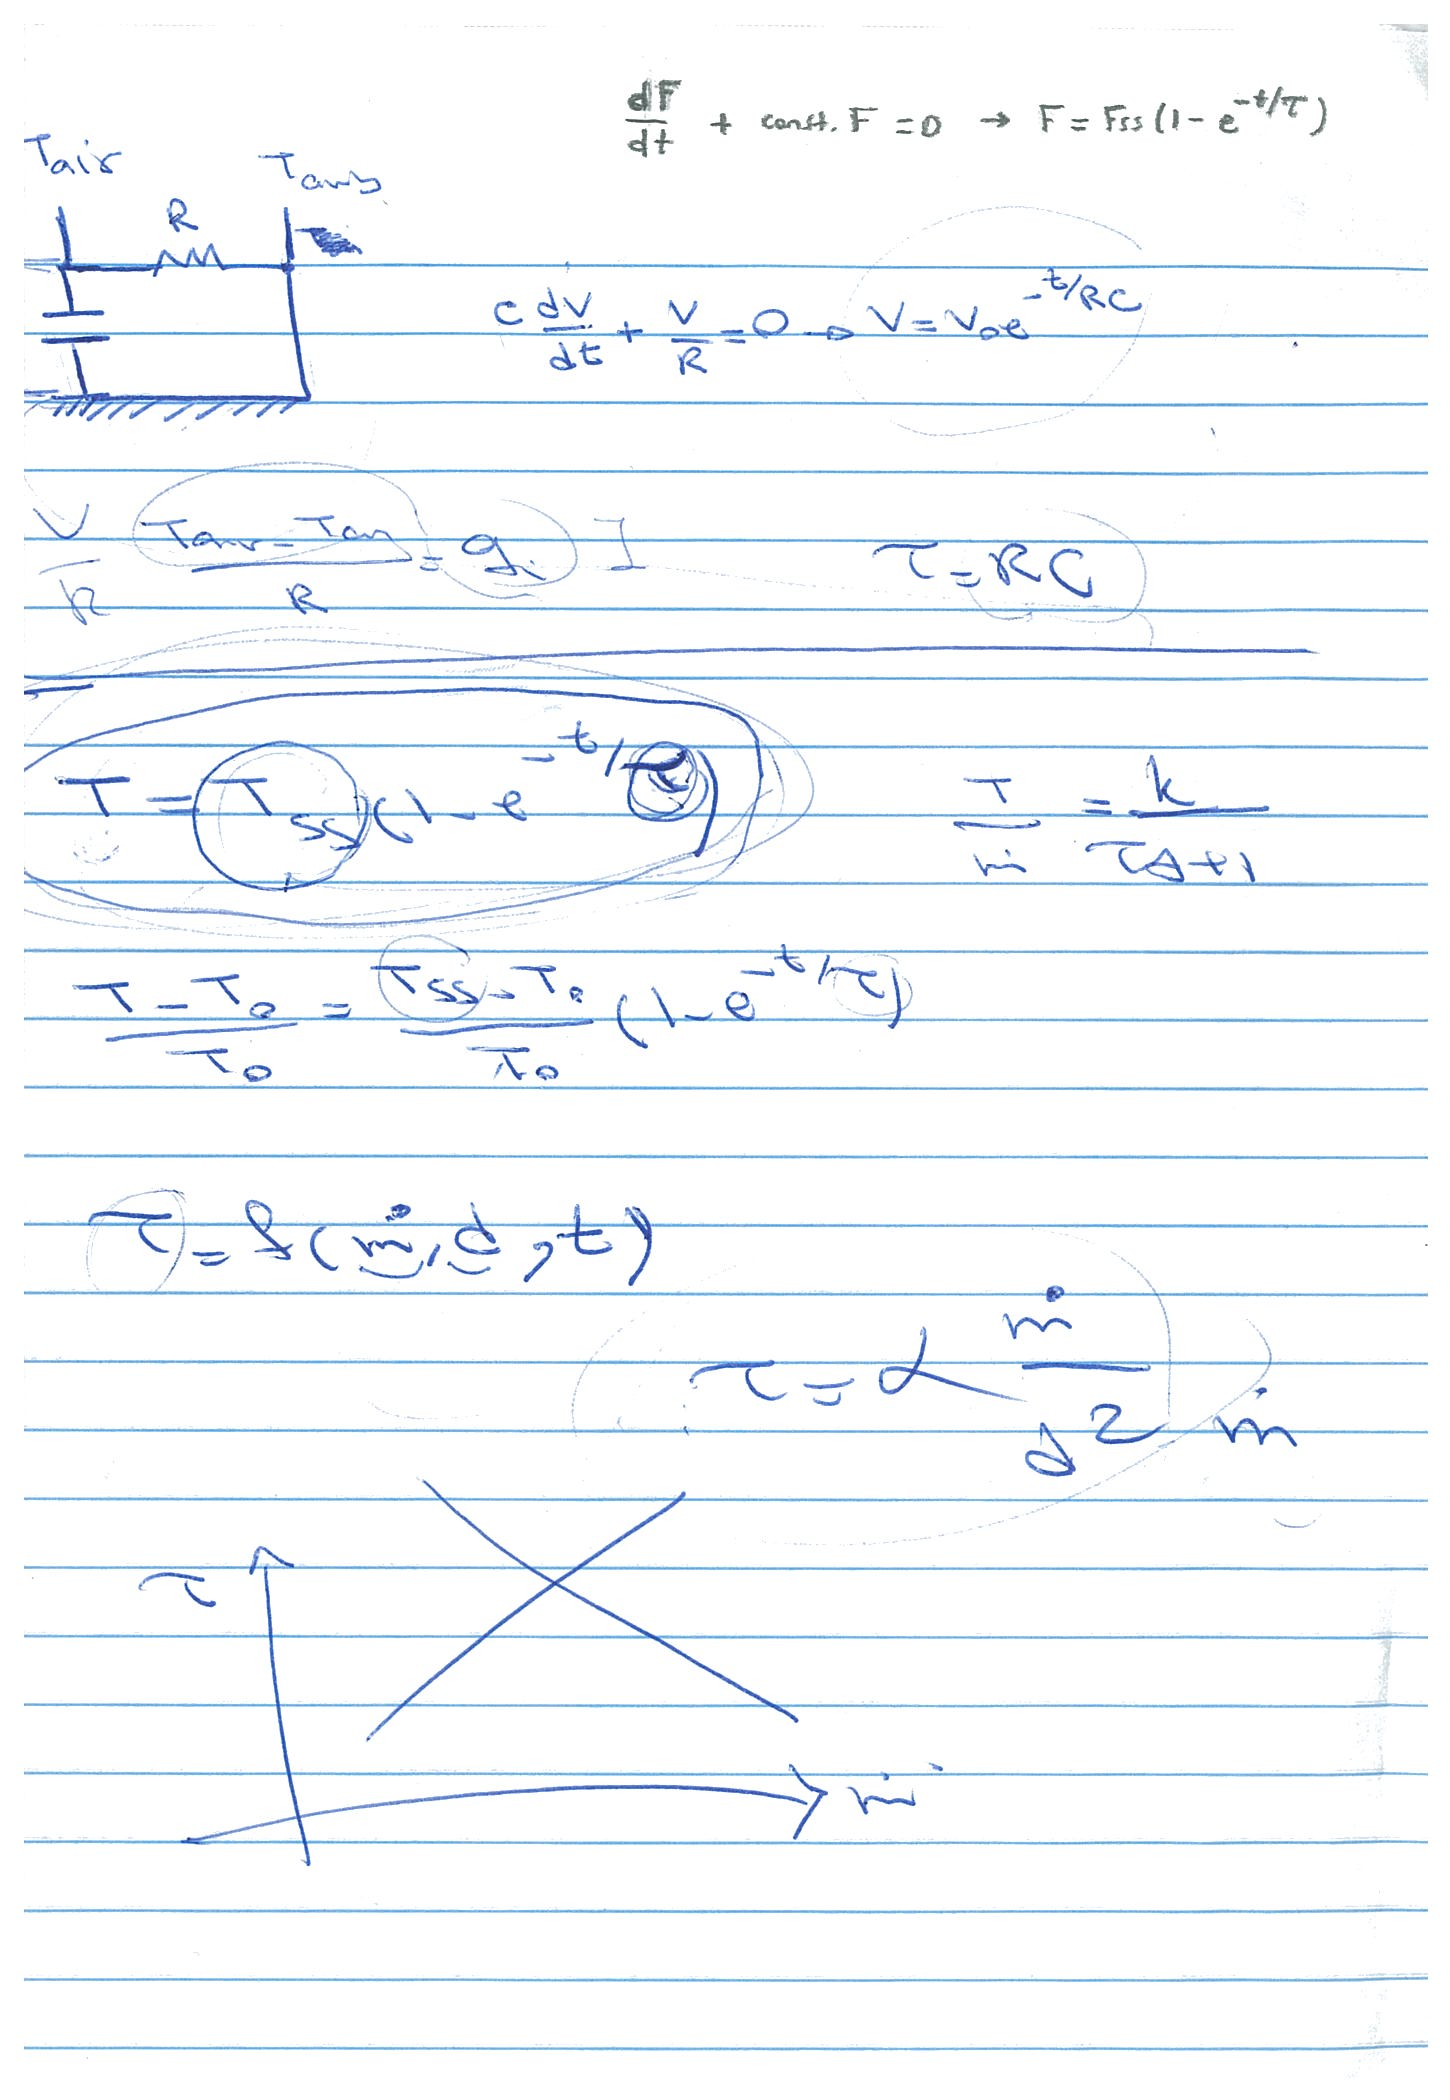 dF/dt + const. F = 0 → F = Fss (1 - e^-t/τ)
Tair Tamb
R
C dV/dt + V/R = 0 → V = V₀e^-t/RC
V/R (Tair - Tam)/R = q. I τ = RC
T = Tss (1 - e^-t/τ) T/ṁ = k/(τs+1)
(T - T₀)/T₀ = (Tss - T₀)/T₀ (1 - e^-t/τ)
τ = f(ṁ, d, t)
τ = α ṁ/d² ṁ
τ
ṁ